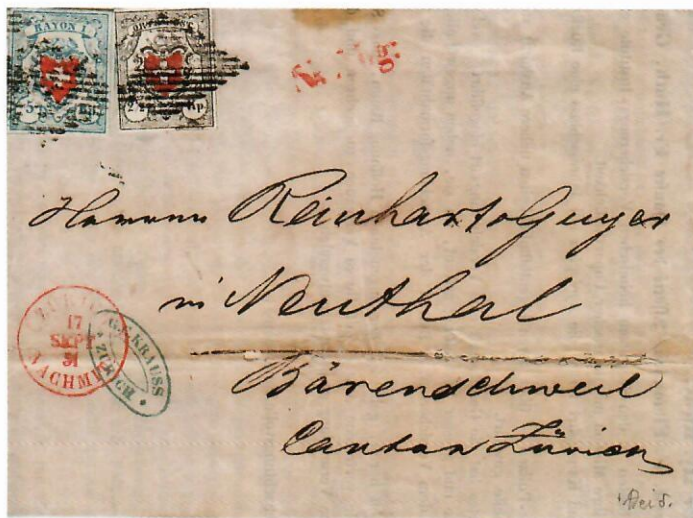 RAYON I
5 Rp.
ORTS POST
2½ Rp
Herrren Reinhart & Guyer
in Neuthal
Bärenschweil
Canton Zürich
ZURICH
17
SEPT
51
NACHMIT
G. F. KRAUSS
ZURICH